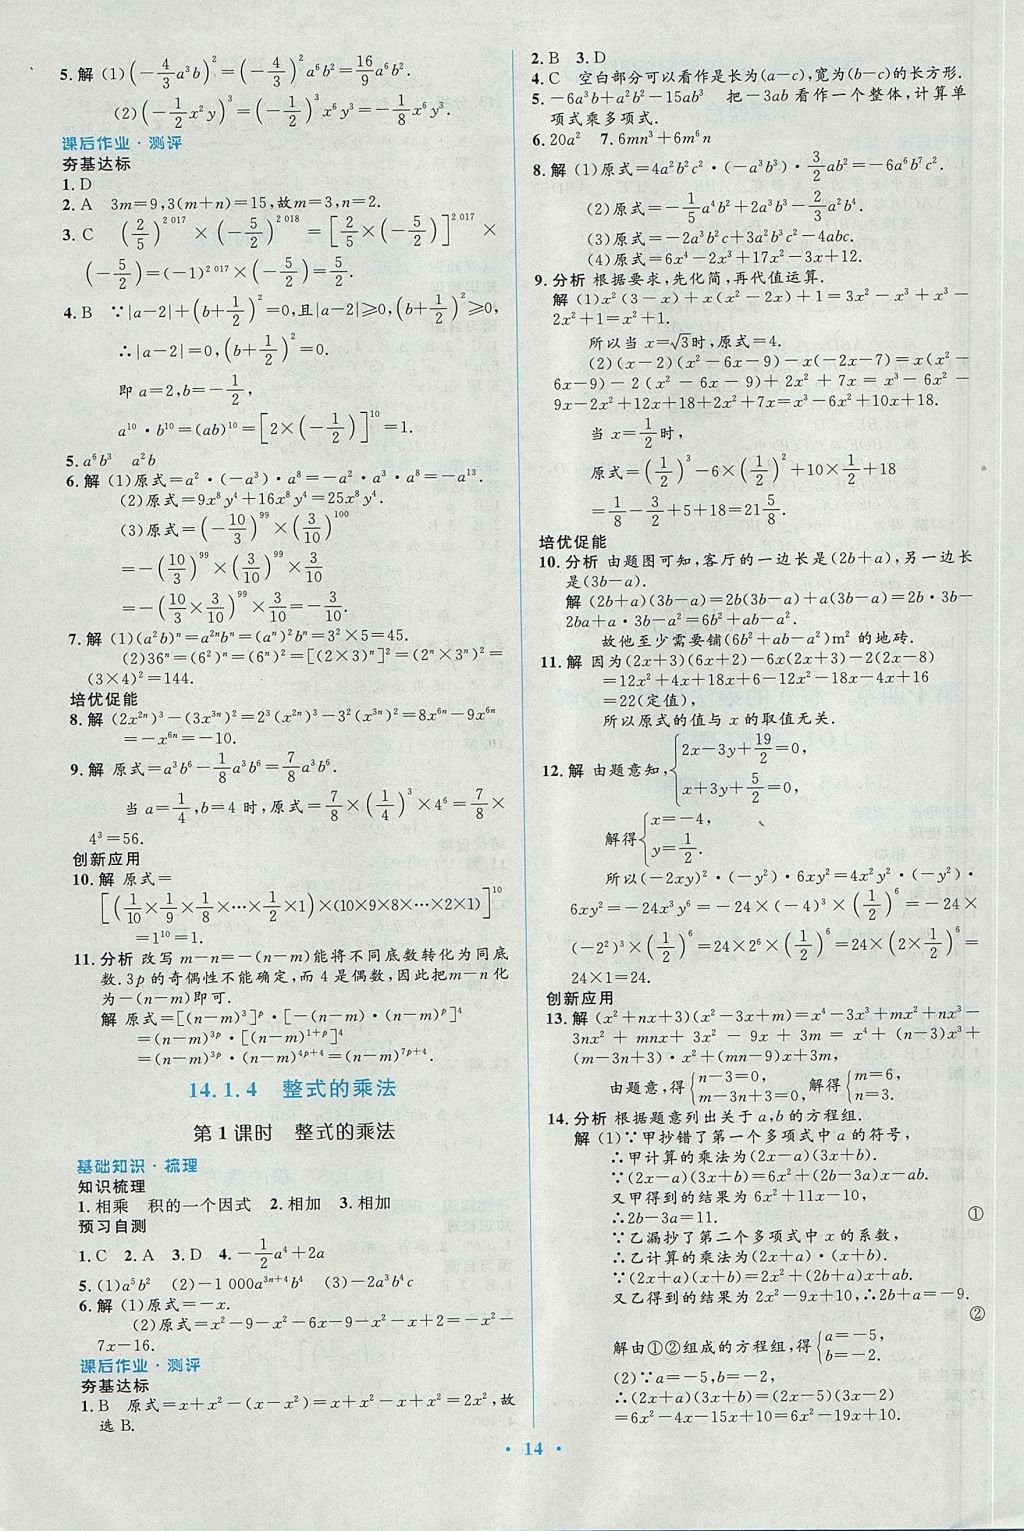 5.解 (1)(-4/3 a³b)²=(-4/3)²a⁶b²=16/9 a⁶b².
(2)(-1/2 x²y)³=(-1/2)³x⁶y³=-1/8 x⁶y³.
课后作业·测评
夯基达标
1.D
2.A 3m=9,3(m+n)=15,故m=3,n=2.
3.C (2/5)²⁰¹⁷×(-5/2)²⁰¹⁸=[2/5×(-5/2)]²⁰¹⁷×
(-5/2)=(-1)²⁰¹⁷×(-5/2)=5/2.
4.B ∵|a-2|+(b+1/2)²=0,且|a-2|≥0,(b+1/2)²≥0,
∴|a-2|=0,(b+1/2)²=0.
即 a=2,b=-1/2,
a¹⁰·b¹⁰=(ab)¹⁰=[2×(-1/2)]¹⁰=1.
5.a⁶b³ a²b
6.解 (1)原式=a²·(-a³)·a⁸=-a²·a³·a⁸=-a¹³.
(2)原式=9x⁸y⁴+16x⁸y⁴=25x⁸y⁴.
(3)原式=(-10/3)⁹⁹×(3/10)¹⁰⁰
=-(10/3)⁹⁹×(3/10)⁹⁹×3/10
=-(10/3×3/10)⁹⁹×3/10=-3/10.
7.解 (1)(a²b)ⁿ=a²ⁿbⁿ=(aⁿ)²bⁿ=3²×5=45.
(2)36ⁿ=(6²)ⁿ=(6ⁿ)²=[(2×3)ⁿ]²=(2ⁿ×3ⁿ)²=
(3×4)²=144.
培优促能
8.解 (2x²ⁿ)³-(3x³ⁿ)²=2³(x²ⁿ)³-3²(x³ⁿ)²=8x⁶ⁿ-9x⁶ⁿ
=-x⁶ⁿ=-10.
9.解 原式=a³b⁶-1/8 a³b⁶=7/8 a³b⁶.
当 a=1/4,b=4 时,原式=7/8×(1/4)³×4⁶=7/8×
4³=56.
创新应用
10.解 原式=
[(1/10×1/9×1/8×⋯×1/2×1)×(10×9×8×⋯×2×1)]¹⁰
=1¹⁰=1.
11.分析 改写 m-n=-(n-m)能将不同底数转化为同底
数.3p的奇偶性不能确定,而 4 是偶数,因此把m-n化
为-(n-m)即可.
解 原式=[(n-m)³]ᵖ·[-(n-m)·(n-m)ᵖ]⁴
=(n-m)³ᵖ·[(n-m)¹⁺ᵖ]⁴
=(n-m)³ᵖ·(n-m)⁴ᵖ⁺⁴=(n-m)⁷ᵖ⁺⁴.
14.1.4 整式的乘法
第1课时 整式的乘法
基础知识·梳理
知识梳理
1.相乘 积的一个因式 2.相加 3.相加
预习自测
1.C 2.A 3.D 4.-1/2 a⁴+2a
5.(1)a⁵b² (2)-1 000a³ⁿ⁺⁴b⁴ (3)-2a³b⁴c
6.解 (1)原式=-x.
(2)原式=x²-9-x²-6x-9-x²-x+2=-x²-
7x-16.
课后作业·测评
夯基达标
1.B 原式=x+x²-(x-x²)=x+x²-x+x²=2x²,故
选 B.
2.B 3.D
4.C 空白部分可以看作是长为(a-c),宽为(b-c)的长方形.
5.-6a³b+a²b²-15ab³ 把-3ab看作一个整体,计算单
项式乘多项式.
6.20a² 7.6mn³+6m⁶n
8.解 (1)原式=4a²b²c²·(-a³b³)·3/2 ab²=-6a⁶b⁷c².
(2)原式=-1/5 a⁴b²+2a³b²-2/3 a²b⁴.
(3)原式=-2a³b²c+3a²b³c-4abc.
(4)原式=6x⁴-2x³+17x²-3x+12.
9.分析 根据要求,先化简,再代值运算.
解 (1)x²(3-x)+x(x²-2x)+1=3x²-x³+x³-
2x²+1=x²+1.
所以当 x=√3时,原式=4.
(2)(x-2)(x²-6x-9)-x(-2x-7)=x(x²-
6x-9)-2(x²-6x-9)+2x²+7x=x³-6x²-
9x-2x²+12x+18+2x²+7x=x³-6x²+10x+18.
当 x=1/2时,
原式=(1/2)³-6×(1/2)²+10×1/2+18
=1/8-3/2+5+18=21 5/8.
培优促能
10.分析 由题图可知,客厅的一边长是(2b+a),另一边长
是(3b-a).
解 (2b+a)(3b-a)=2b(3b-a)+a(3b-a)=2b·3b-
2ba+a·3b-a²=6b²+ab-a².
故他至少需要铺(6b²+ab-a²)m² 的地砖.
11.解 因为(2x+3)(6x+2)-6x(2x+13)+8(7x+2)
=12x²+4x+18x+6-12x²-78x+56x+16
=22(定值),
所以原式的值与 x 的取值无关.
12.解 由题意知,{2x-3y+19/2=0,
x+3y+5/2=0,
解得{x=-4,
y=1/2.
所以(-2xy)²·(-y²)·6xy²=4x²y²·(-y²)·
6xy²=-24x³y⁶=-24×(-4)³×(1/2)⁶=-24×
(-2²)³×(1/2)⁶=24×2⁶×(1/2)⁶=24×(2×1/2)⁶=
24×1=24.
创新应用
13.解 (x²+nx+3)(x²-3x+m)=x⁴-3x³+mx²+nx³-
3nx²+mnx+3x²-9x+3m=x⁴+(n-3)x³+
(m-3n+3)x²+(mn-9)x+3m,
由题意,得{n-3=0,
m-3n+3=0, 解得{m=6,
n=3.
14.分析 根据题意列出关于a,b的方程组.
解 (1)∵甲抄错了第一个多项式中 a 的符号,
∴甲计算的乘法为(2x-a)(3x+b).
∴(2x-a)(3x+b)=6x²+(2b-3a)x-ab.
又甲得到的结果为 6x²+11x-10,
∴2b-3a=11. ①
∵乙漏抄了第二个多项式中 x 的系数,
∴乙计算的乘法为(2x+a)·(x+b).
∴(2x+a)(x+b)=2x²+(2b+a)x+ab.
又乙得到的结果为 2x²-9x+10,∴2b+a=-9.
②
解由①②组成的方程组,得{a=-5,
b=-2.
(2)∵a=-5,b=-2,
∴(2x+a)(3x+b)=(2x-5)(3x-2)
=6x²-4x-15x+10=6x²-19x+10.
·14·